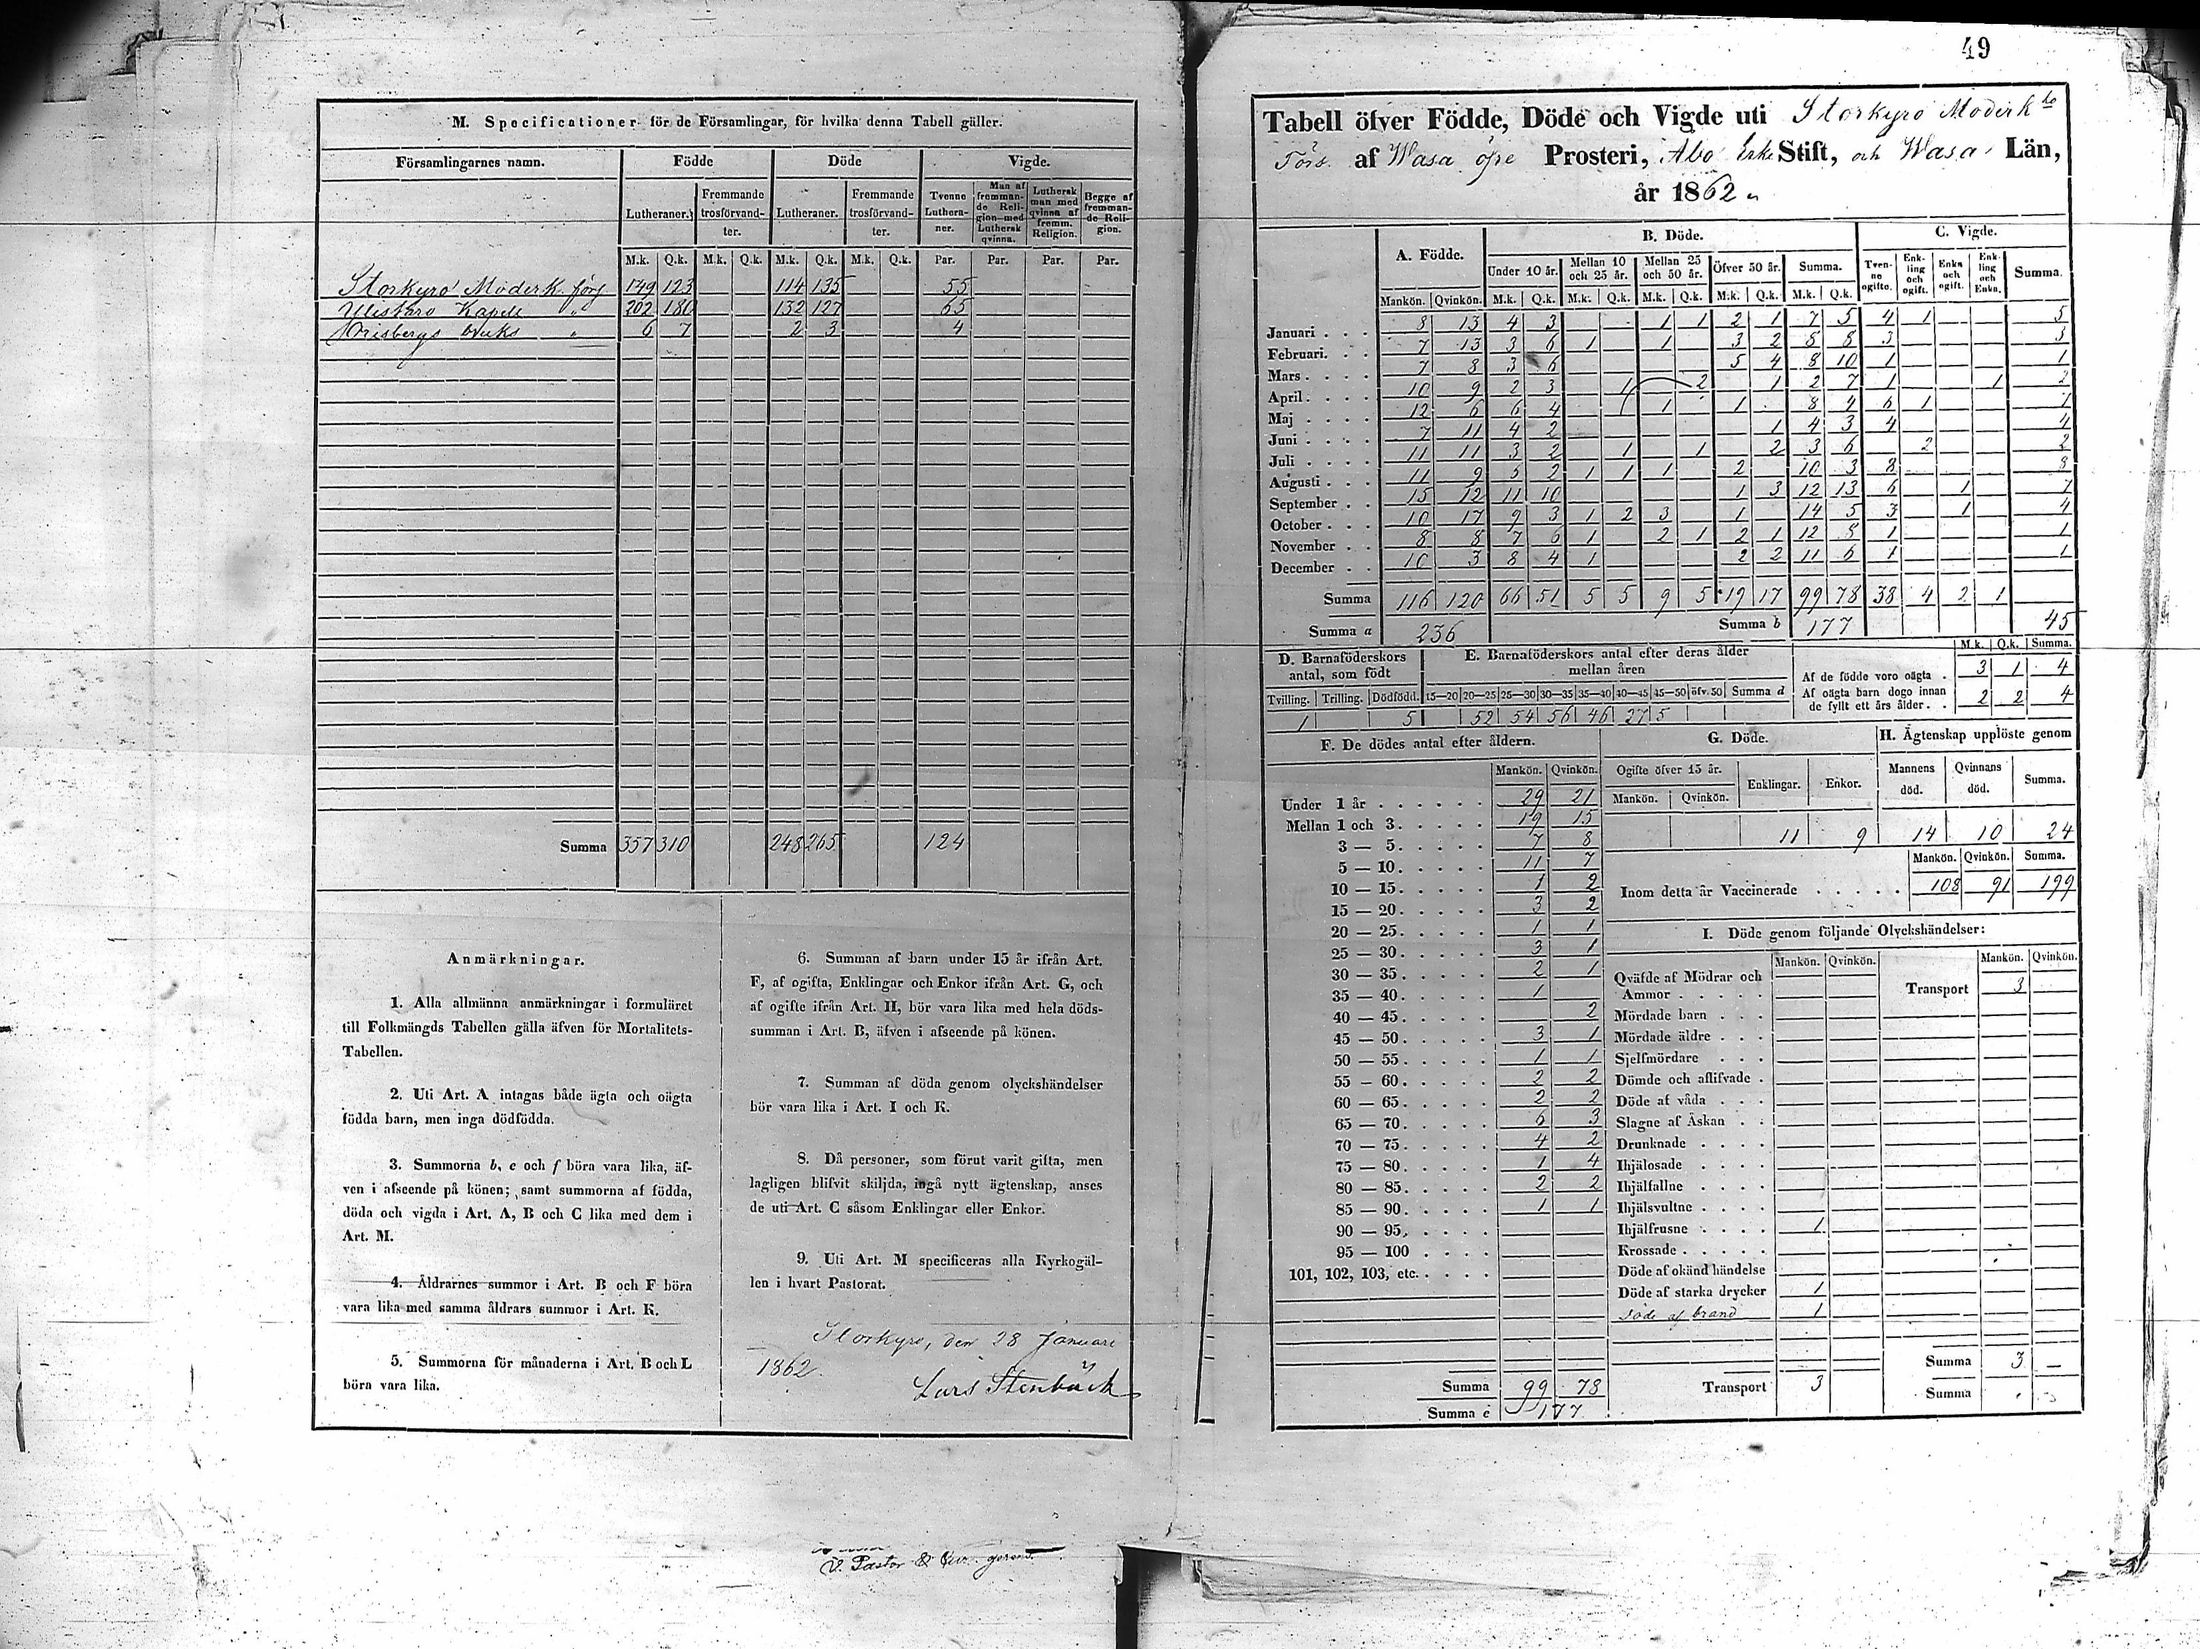 M. Specificationer för de Församlingar, för hvilka denna Tabell gäller.
Församlingarnes namn. Födde Döde Vigde.
Lutheraner. Fremmande trosförvandter. Lutheraner. Fremmande trosförvandter. Tvenne Lutheraner. Man af fremmande Religion med Luthersk qvinna. Luthersk man med qvinna af fremm. Religion. Begge af fremmande Religion.
M.k. Q.k. M.k. Q.k. M.k. Q.k. M.k. Q.k. Par. Par. Par. Par.
Storkyro Moderk. förs 149 123 114 135 55
Ylistaro Kapell " 202 180 132 127 65
Orisbergs bruks " 6 7 2 3 4
Summa 357 310 248 265 124
Anmärkningar.
1. Alla allmänna anmärkningar i formuläret
till Folkmängds Tabellen gälla äfven för Mortalitets-
Tabellen.
2. Uti Art. A intagas både ägta och oägta
födda barn, men inga dödfödda.
3. Summorna b, c och f böra vara lika, äf-
ven i afseende på könen; samt summorna af födda,
döda och vigda i Art. A, B och C lika med dem i
Art. M.
4. Åldrarnes summor i Art. B och F böra
vara lika med samma åldrars summor i Art. K.
5. Summorna för månaderna i Art. B och L
böra vara lika.
6. Summan af barn under 15 år ifrån Art.
F, af ogifta, Enklingar och Enkor ifrån Art. G, och
af ogifte ifrån Art. H, bör vara lika med hela döds-
summan i Art. B, äfven i afseende på könen.
7. Summan af döda genom olyckshändelser
bör vara lika i Art. I och K.
8. Då personer, som förut varit gifta, men
lagligen blifvit skiljda, ingå nytt ägtenskap, anses
de uti Art. C såsom Enklingar eller Enkor.
9. Uti Art. M specificeras alla Kyrkogäl-
len i hvart Pastorat.
Storkyro, den 28 Januari
1862.
Lars Stenbäck
V. Pastor
49
Tabell öfver Födde, Döde och Vigde uti Storkyro Moderk
Förs. af Wasa öfre Prosteri, Åbo Erke Stift, och Wasa Län,
år 1862
A. Födde. B. Döde. C. Vigde.
Under 10 år. Mellan 10 och 25 år. Mellan 25 och 50 år. Öfver 50 år. Summa. Tvenne ogifte. Enkling och ogift. Enka och ogift. Enkling och Enka. Summa.
Mankön. Qvinkön. M.k. Q.k. M.k. Q.k. M.k. Q.k. M.k. Q.k. M.k. Q.k.
Januari . . . 8 13 4 3 1 1 2 1 7 5 4 1 5
Februari. . . 7 13 3 6 1 1 3 2 8 8 3 3
Mars . . . . 7 8 3 6 5 4 8 10 1 1
April . . . . 10 9 2 3 1 2 1 2 7 1 1 2
Maj . . . . 12 6 6 4 1 1 8 4 6 1 7
Juni . . . . 7 11 4 2 1 4 3 4 4
Juli . . . . 11 11 3 2 1 1 2 3 6 2 2
Augusti . . . 11 9 5 2 1 1 1 2 10 3 8 8
September . . 15 12 11 10 1 3 12 13 6 1 7
October . . . 10 17 9 3 1 2 3 1 14 5 3 1 4
November . . 8 8 7 6 1 2 1 2 1 12 8 1 1
December . . 10 3 8 4 1 2 2 11 6 1 1
Summa 116 120 66 51 5 5 9 5 19 17 99 78 38 4 2 1
Summa a 236 Summa b 177 45
D. Barnaföderskors antal, som födt
Tvilling. Trilling. Dödfödd.
1 5
E. Barnaföderskors antal efter deras ålder mellan åren
15—20 20—25 25—30 30—35 35—40 40—45 45—50 öfv. 50 Summa d
52 54 56 46 27 5
M.k. Q.k. Summa.
Af de födde voro oägta . 3 1 4
Af oägta barn dogo innan
de fyllt ett års ålder . . 2 2 4
F. De dödes antal efter åldern.
Mankön. Qvinkön.
Under 1 år . . . . . . 29 21
Mellan 1 och 3. . . . . 19 15
3 — 5. . . . . 7 8
5 — 10. . . . . 11 7
10 — 15. . . . . 1 2
15 — 20. . . . . 3 2
20 — 25. . . . . 1 1
25 — 30. . . . . 3 1
30 — 35. . . . . 2 1
35 — 40. . . . . 1
40 — 45. . . . . 2
45 — 50. . . . . 3 1
50 — 55. . . . . 1 1
55 — 60. . . . . 2 2
60 — 65. . . . . 2 2
65 — 70. . . . . 6 3
70 — 75. . . . . 4 2
75 — 80. . . . . 1 4
80 — 85. . . . . 2 2
85 — 90. . . . . 1 1
90 — 95. . . . .
95 — 100 . . . .
101, 102, 103, etc. . . . .
Summa 99 78
Summa c 177
G. Döde.
Ogifte öfver 15 år. Enklingar. Enkor.
Mankön. Qvinkön.
11 9
H. Ägtenskap upplöste genom
Mannens död. Qvinnans död. Summa.
14 10 24
Mankön. Qvinkön. Summa.
Inom detta år Vaccinerade . . . . . 108 91 199
I. Döde genom följande Olyckshändelser:
Mankön. Qvinkön. Mankön. Qvinkön.
Qväfde af Mödrar och
Ammor . . . . .
Transport 3
Mördade barn . . .
Mördade äldre . . .
Sjelfmördare . . .
Dömde och aflifvade .
Döde af våda . . .
Slagne af Åskan . .
Drunknade . . . .
Ihjälosade . . . .
Ihjälfallne . . . .
Ihjälsvultne . . . .
Ihjälfrusne . . . . 1
Krossade . . . . .
Döde af okänd händelse
Döde af starka drycker 1
Döde af brand 1
Summa 3 —
Transport 3
Summa